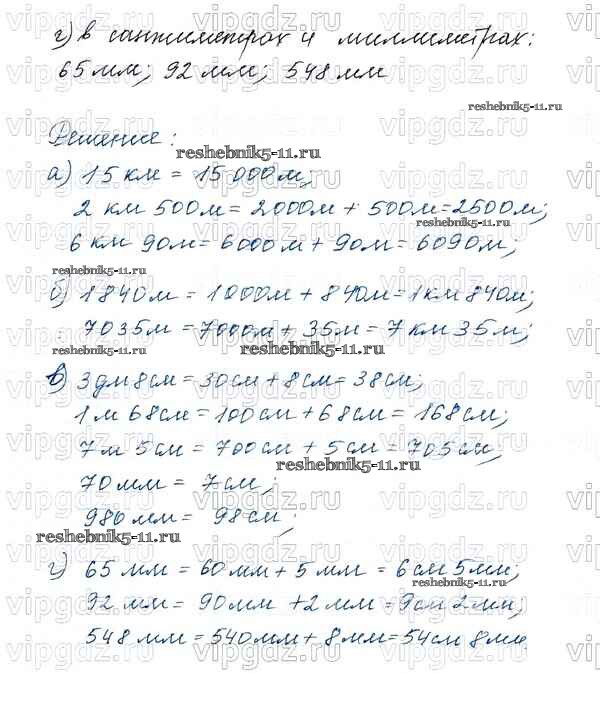 г) в сантиметрах и миллиметрах:
65 мм; 92 мм; 548 мм
reshebnik5-11.ru
Решение:
reshebnik5-11.ru
а) 15 км = 15 000 м;
2 км 500 м = 2000 м + 500 м = 2500 м;
6 км 90 м = 6000 м + 90 м = 6090 м;
reshebnik5-11.ru
б) 1840 м = 1000 м + 840 м = 1 км 840 м;
7035 м = 7000 м + 35 м = 7 км 35 м;
reshebnik5-11.ru
reshebnik5-11.ru
в) 3 дм 8 см = 30 см + 8 см = 38 см;
1 м 68 см = 100 см + 68 см = 168 см;
7 м 5 см = 700 см + 5 см = 705 см;
reshebnik5-11.ru
70 мм = 7 см;
980 мм = 98 см;
reshebnik5-11.ru
г) 65 мм = 60 мм + 5 мм = 6 см 5 мм;
reshebnik5-11.ru
92 мм = 90 мм + 2 мм = 9 см 2 мм;
548 мм = 540 мм + 8 мм = 54 см 8 мм.